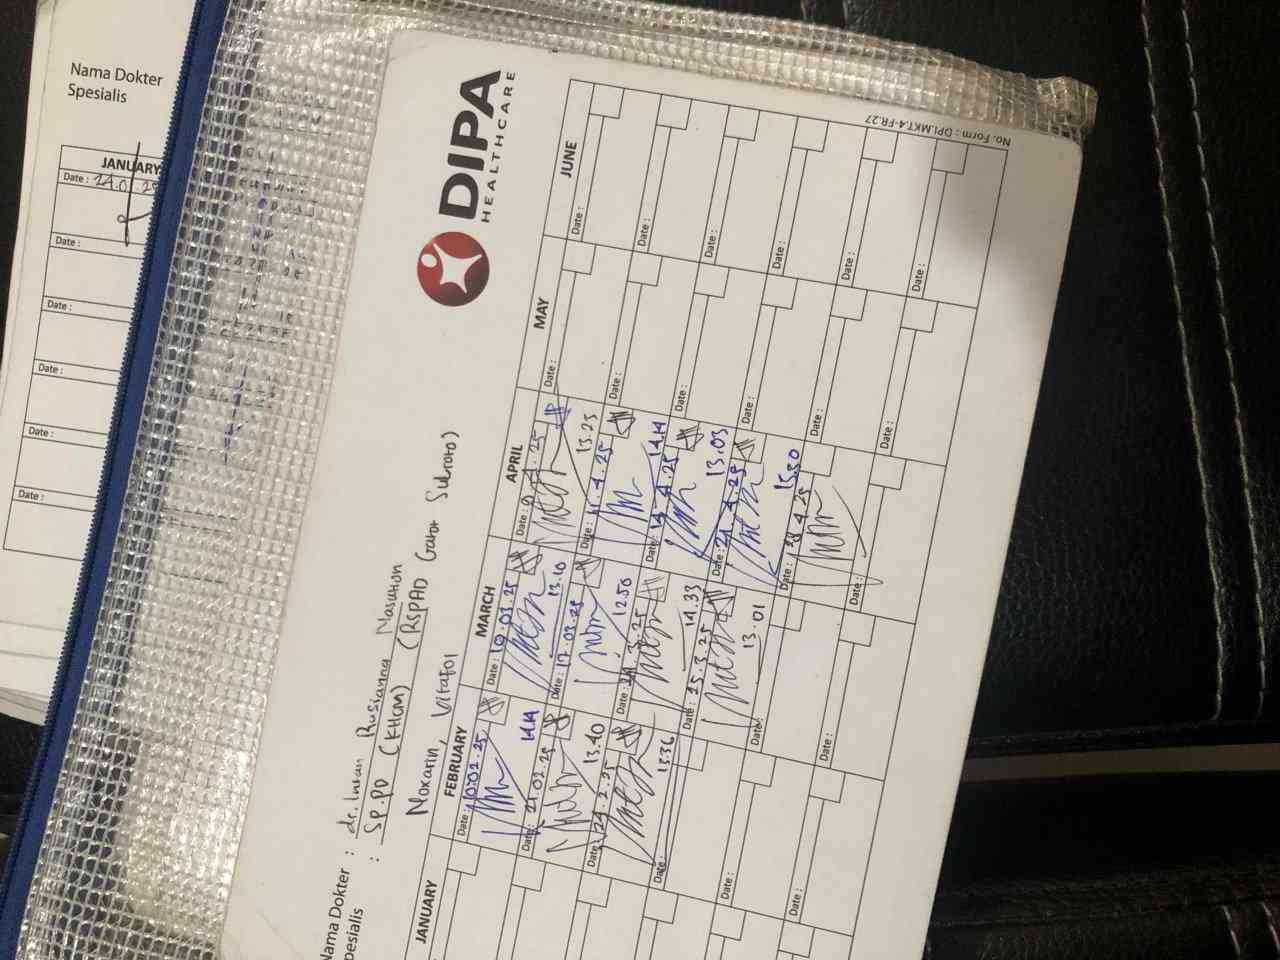 Nama Dokter
Spesialis
JANUARY
Date :
Date :
Date :
Date :
Date :
Date :
DIPA
HEALTHCARE
Nama Dokter : dr. Intan Russianna Nasution
Spesialis : Sp.PD (KHOM) (RSPAD Gatot Subroto)
Noxarin, Vitafol
JANUARY FEBRUARY MARCH APRIL MAY JUNE
Date : 10.02.25
14.14
Date : 21.02.25
13.40
Date : 24.2.25
13.36
Date :
Date :
Date :
Date : 10.03.25
13.10
Date : 17.03.25
12.50
Date : 24.3.25
14.33
Date : 25.3.25
13.01
Date :
Date :
Date :
13.25
Date : 11.4.25
14.14
Date : 14.4.25
13.03
Date : 21.4.25
15.50
Date : 28.4.25
Date :
Date :
Date :
Date :
Date :
Date :
Date :
Date :
Date :
Date :
Date :
Date :
Date :
No. Form : DPI.MKT.4-FR.27